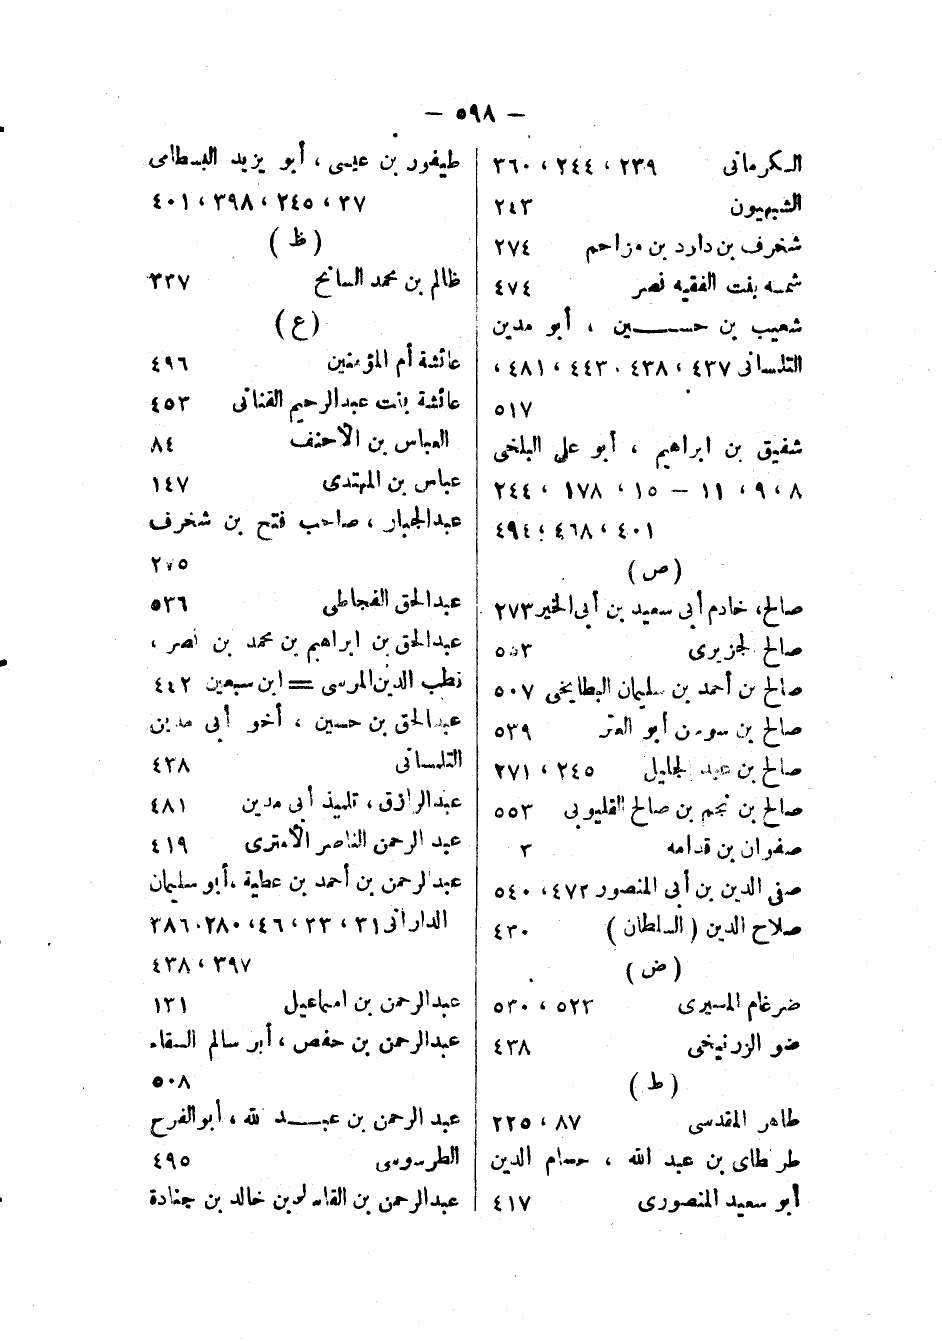 — ٥٩٨ —
الكرمانى ٢٣٩ ، ٢٤٤ ، ٣٦٠
الشبهيون ٢٤٣
شخرف بن دارد بن مزاحم ٢٧٤
شمسه بنت الفقيه نصر ٤٧٤
شعيب بن حسين ، أبو مدين
التلمسانى ٤٣٧ ، ٤٣٨ ، ٤٤٣ ، ٤٨١ ،
٥١٧
شفيق بن ابراهيم ، أبو على البلخى
٨ ، ٩ ، ١١ – ١٥ ، ١٧٨ ، ٢٤٤
٤٠١ ، ٤٦٨ ، ٤٩٤
(ص)
صالح، خادم أبى سعيد بن أبى الخير ٢٧٣
صالح الجزيرى ٥٥٣
صالح بن أحمد بن سليمان البطايخى ٥٠٧
صالح بن أبو العز ٥٣٩
صالح بن عبد الجليل ٢٤٥ ، ٢٧١
صالح بن نجم بن صالح القليوبى ٥٥٣
صفوان بن قدامه ٣
صفى الدين بن أبى المنصور ٤٧٢ ، ٥٤٠
صلاح الدين (السلطان) ٤٣٠
(ض)
ضرغام المسيرى ٥٢٣ ، ٥٣٠
ضو الزرنيخى ٤٣٨
(ط)
طاهر المقدسى ٨٧ ، ٢٢٥
طرطاى بن عبد الله ، حسام الدين
أبو سعيد المنصورى ٤١٧
طيفور بن عيسى ، أبو يزيد البسطامى
٢٧ ، ٢٤٥ ، ٣٩٨ ، ٤٠١
(ظ)
ظالم بن محمد السائح ٣٣٧
(ع)
عائشة أم المؤمنين ٤٩٦
عائشة بنت عبدالرحيم القنائى ٤٥٣
العباس بن الأحنف ٨٤
عباس بن المهتدى ١٤٧
عبدالجبار ، صاحب فتح بن شخرف
٢٧٥
عبدالحق الفجاطى ٥٣٦
عبدالحق بن ابراهيم بن محمد بن نصر ،
قطب الدين المرسى = ابن سبعين ٤٤٢
عبدالحق بن حسين ، أخو أبى مدين
التلمسانى ٤٣٨
عبدالرازق ، تلميذ أبى مدين ٤٨١
عبد الرحمن الناصر الأموى ٤١٩
عبدالرحمن بن أحمد بن عطية ،أبو سليمان
الدارانى ٣١ ، ٣٣ ، ٤٦ ، ٢٨٠ ، ٣٨٦
٣٩٧ ، ٤٣٨
عبدالرحمن بن اسماعيل ١٣١
عبدالرحمن بن حفص ، أبو سالم السقاء
٥٠٨
عبد الرحمن بن عبد لله ، أبوالفرح
الطرسوسى ٤٩٥
عبدالرحمن بن القاسم بن خالد بن جنادة